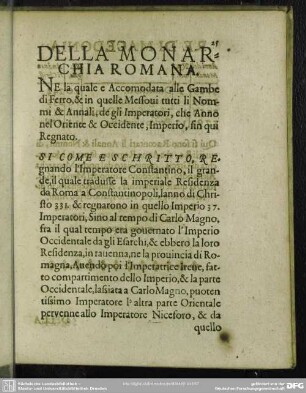 DELLA MONAR-
CHIA ROMANA.
NE la quale e Accomodata alle Gambe
di Ferro, & in quelle Messoui tutti li Nom-
mi & Annali, de gli Imperatori, che Anno
nel Oriente & Occidente, Imperio, sin qui
Regnato.
SI COME E SCHRITTO, RE-
gnando l'Imperatore Constantino, il gran-
de, il quale tradusse la imperiale Residenza
da Roma a Constantinopoli, lanno di Chri-
sto 331. & regnarono in quello Imperio 37.
Imperatori, Sino al tempo di Carlo Magno,
fra il qual tempo era gouernato l'Imperio
Occidentale da gli Esarchi, & ebbero la loro
Residenza, in rauenna, ne la prouincia di Ro-
magna. Auendo poi l'Imperatrice Irene, fat-
to compartimento dello Imperio, & la parte
Occidentale, lassiata a Carlo Magno, puoten
tissimo Imperatore la altra parte Orientale
peruenne allo Imperatore Niceforo, & da
quello